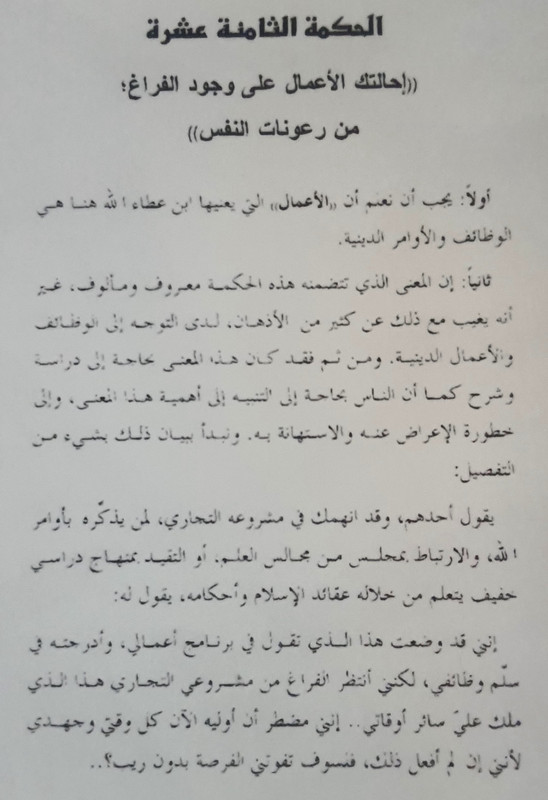 الحكمة الثامنة عشرة
((إحالتك الأعمال على وجود الفراغ؛
من رعونات النفس))
أولاً: يجب أن نعلم أن ((الأعمال)) التي يعنيها ابن عطاء الله هنا هي
الوظائف والأوامر الدينية.
ثانياً: إن المعنى الذي تتضمنه هذه الحكمة معروف ومألوف، غير
أنه يغيب مع ذلك عن كثير من الأذهان، لدى التوجه إلى الوظائف
والأعمال الدينية. ومن ثم فقد كان هذا المعنى بحاجة إلى دراسة
وشرح كما أن الناس بحاجة إلى التنبيه إلى أهمية هذا المعنى، وإلى
خطورة الإعراض عنه والاستهانة به. ونبدأ ببيان ذلك بشيء من
التفصيل:
يقول أحدهم، وقد انهمك في مشروعه التجاري، لمن يذكّره بأوامر
الله، والارتباط بمجلس من مجالس العلم، أو التقيد بمنهاج دراسي
خفيف يتعلم من خلاله عقائد الإسلام وأحكامه، يقول له:
إنني قد وضعت هذا الذي تقول في برنامج أعمالي، وأدرجته في
سلّم وظائفي، لكنني أنتظر الفراغ من مشروعي التجاري هذا الذي
ملك عليّ سائر أوقاتي.. إنني مضطر أن أوليه الآن كل وقتي وجهدي
لأنني إن لم أفعل ذلك، فلسوف تفوتني الفرصة بدون ريب؟..